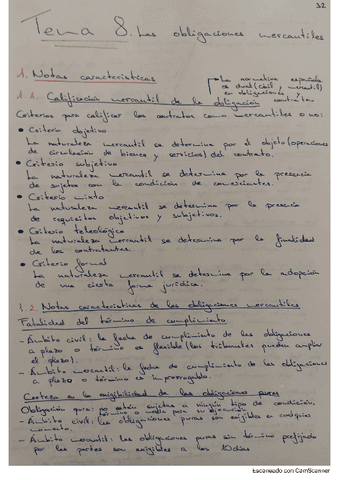 32
Tema 8. Las obligaciones mercantiles
1. Notas características
La normativa española
es dual (civil / mercantil)
en obligaciones
contratos
1.1. Calificación mercantil de la obligación
Criterios para calificar los contratos como mercantiles o no:
• Criterio objetivo
La naturaleza mercantil se determina por el objeto (operaciones
de circulación de bienes y servicios) del contrato.
• Criterio subjetivo
La naturaleza mercantil se determina por la presencia
de sujetos con la condición de comerciantes.
• Criterio mixto
La naturaleza mercantil se determina por la presencia
de requisitos objetivos y subjetivos.
• Criterio teleológico
La naturaleza mercantil se determina por la finalidad
de los contratantes.
• Criterio formal
La naturaleza mercantil se determina por la adopción
de una cierta forma jurídica.
1.2. Notas características de las obligaciones mercantiles
Fatalidad del término de cumplimiento
- Ámbito civil: la fecha de cumplimiento de las obligaciones
a plazo o término es flexible (los tribunales pueden ampliar
el plazo).
- Ámbito mercantil: la fecha de cumplimiento de las obligaciones
a plazo o término es improrrogable.
Certeza en la exigibilidad de las obligaciones puras
Obligación pura: no están sujetas a ningún tipo de condición,
término o modo para su ejecución
- Ámbito civil: las obligaciones puras son exigibles en cualquier
momento.
- Ámbito mercantil: las obligaciones puras sin término prefijado
por las partes son exigibles a los 10 días
Escaneado con CamScanner